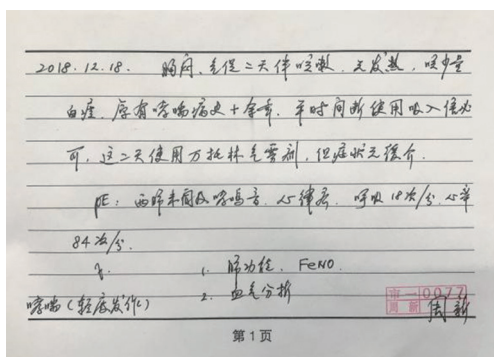 2018.12.18. 胸闷、气促二天伴咳嗽,无发热,咳少量
白痰,原有哮喘病史十余年,平时间断使用吸入信必
可,这二天使用万托林气雾剂,但症状无缓介.
PE: 两肺未闻及哮鸣音,心律齐,呼吸18次/分,心率
84次/分.
1. 肺功能, FeNO.
哮喘(轻度发作) 2. 血气分析
市一0077
周新 周新
第1页